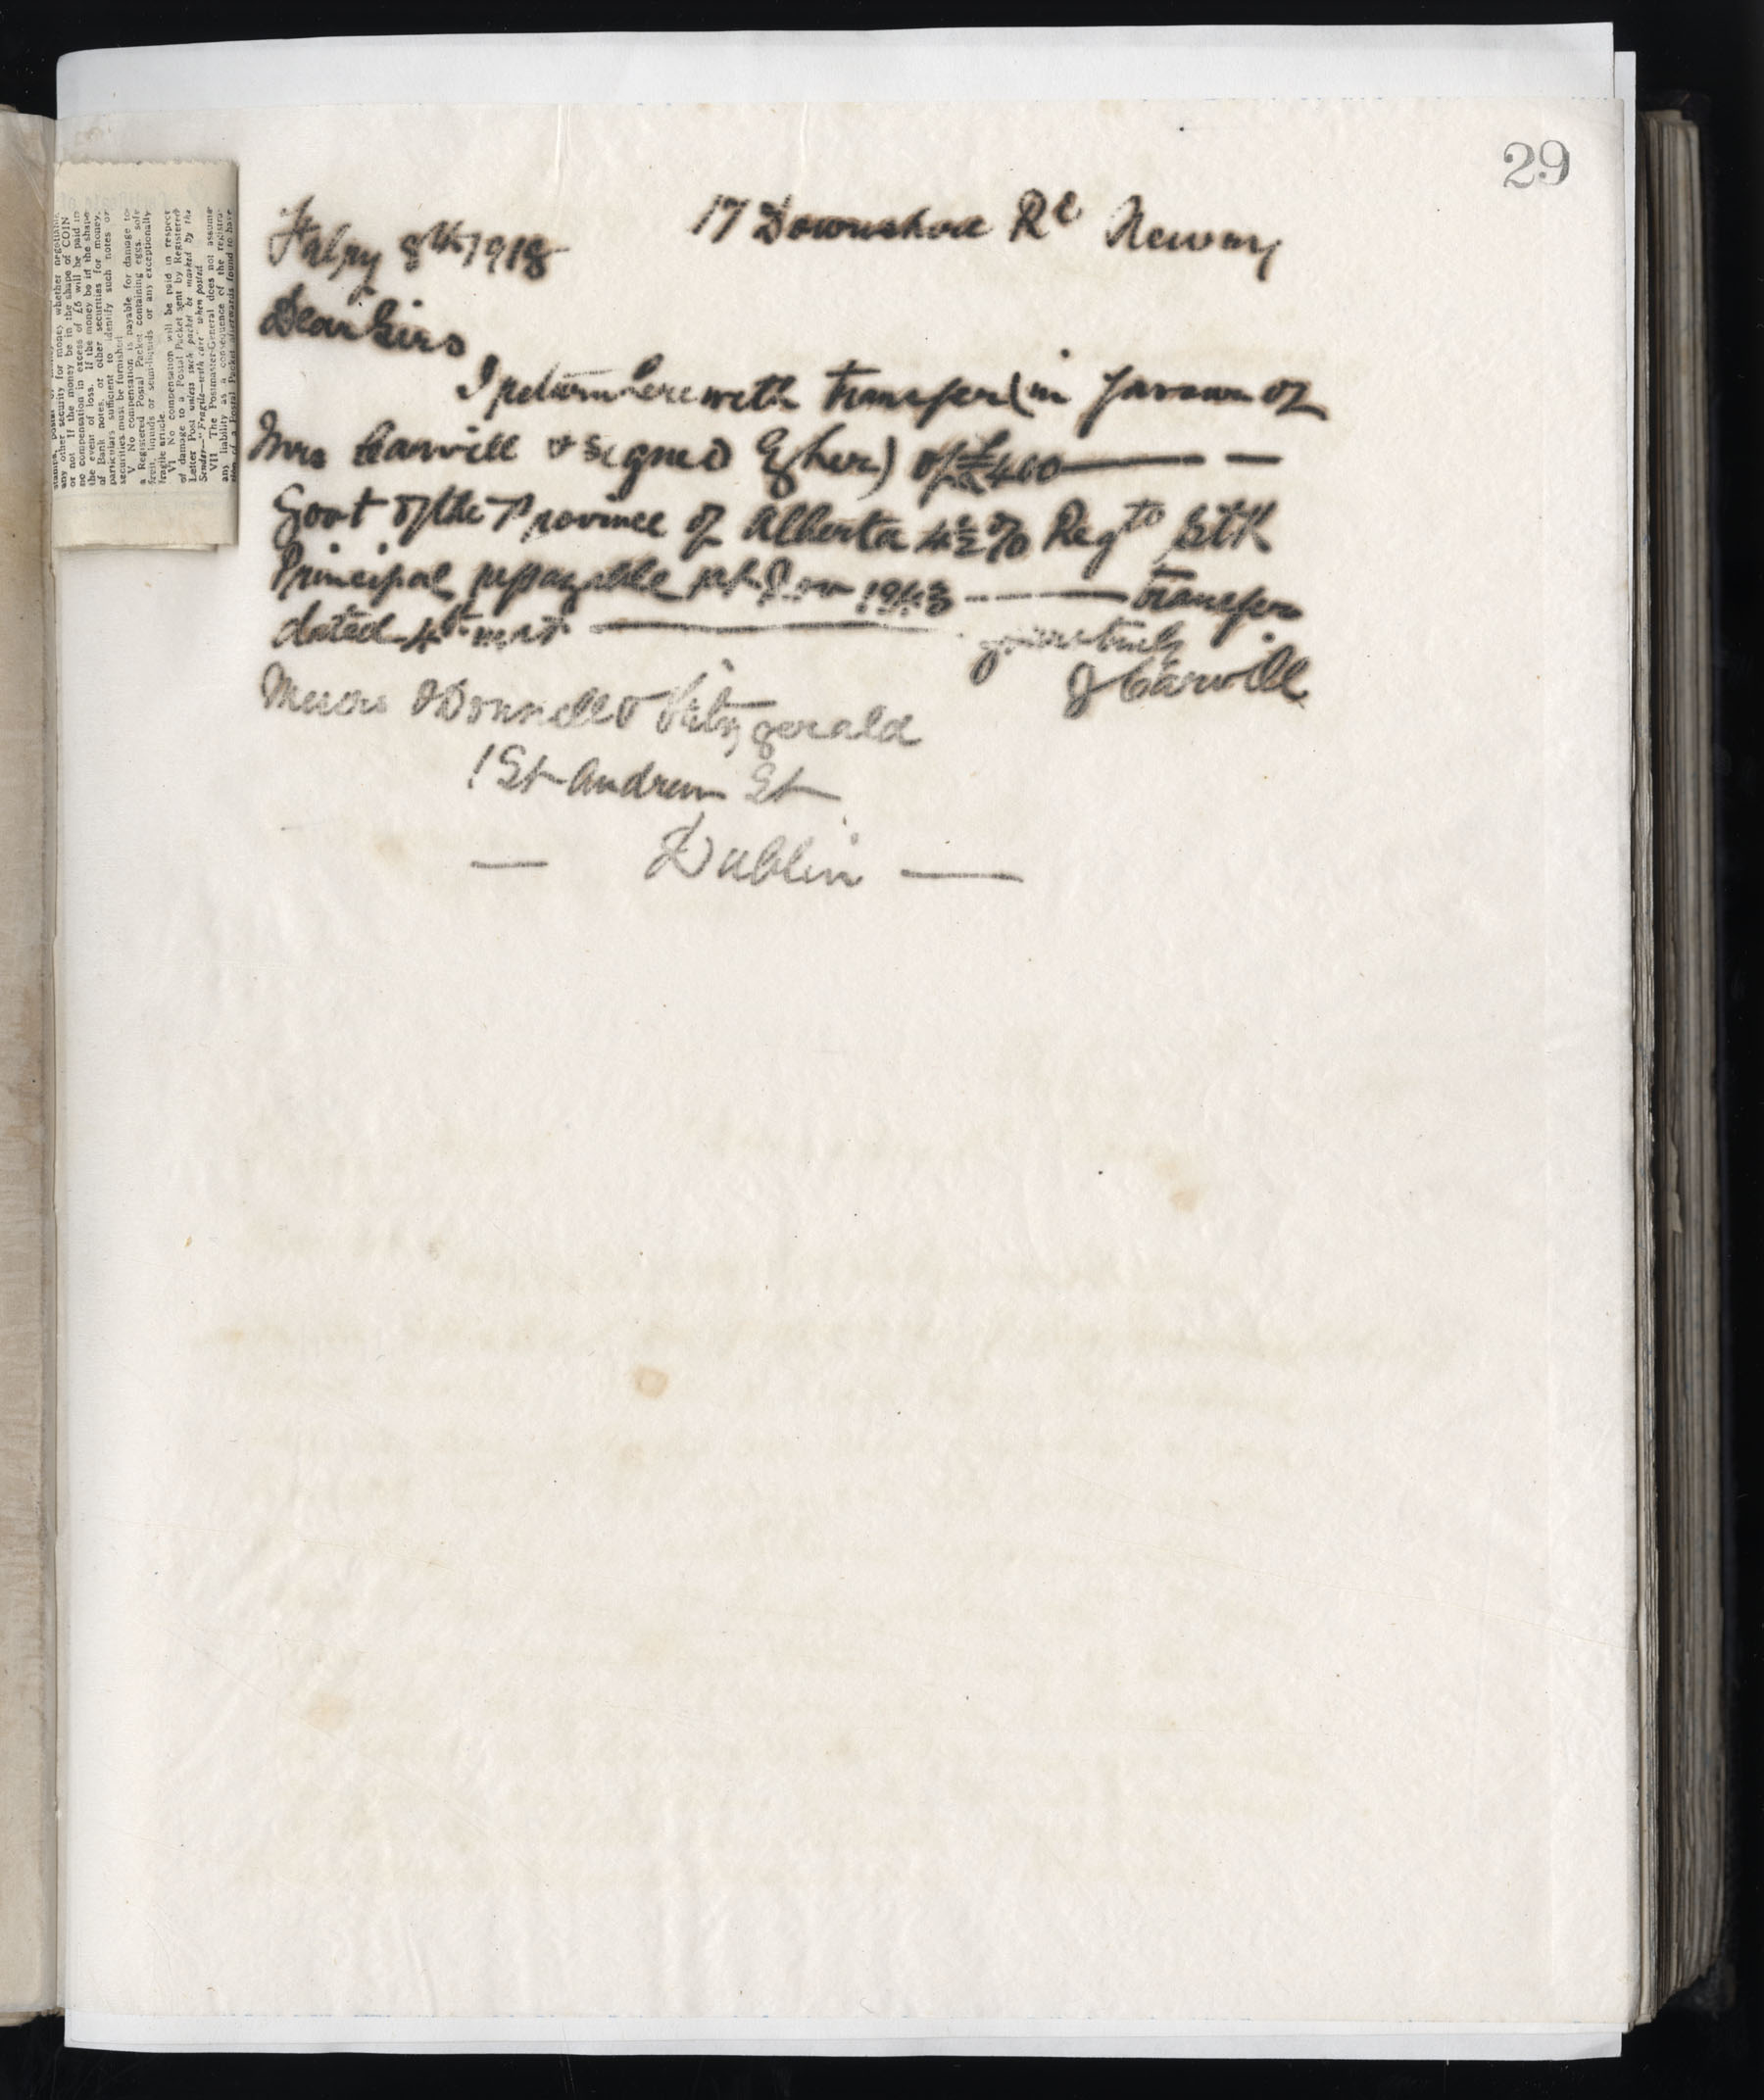 29
17 Downshire Rd Newry
Febry 8th 1918
Dear Sirs
I return herewith transfer (in favour of
Mrs Carvill & signed by her) of £400 — —
Govt of the Province of Alberta 4½% Regd Stk
Principal repayable 1943 — Transfer
dated 4th inst — yours truly
J Carvill
Messrs O'Donnell & Fitzgerald
1 St Andrew St
— Dublin —
any other security for money whether negotiable
or not. If the money be in the shape of COIN
no compensation in excess of £5 will be paid in
the event of loss. If the money be in the shape
of Bank notes, or other securities for money,
particulars sufficient to identify such notes or
securities must be furnished
V No compensation is payable for damage to
a Registered Postal Packet containing eggs, soft
fruit, liquids or semi-liquids or any exceptionally
fragile article.
VI No compensation will be paid in respect
of damage to a Postal Packet sent by Registered
Letter Post unless such packet be marked by the
Sender—"Fragile—with care" when posted
VII The Postmaster-General does not assume
any liability as a consequence of the registra-
tion of a Postal Packet afterwards found to have